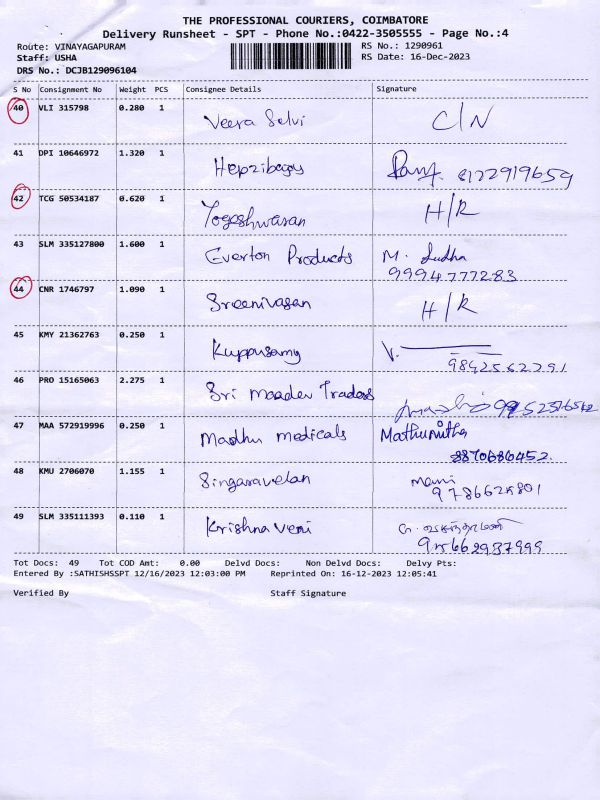 THE PROFESSIONAL COURIERS, COIMBATORE
Delivery Runsheet - SPT - Phone No.:0422-3505555 - Page No.:4
Route: VINAYAGAPURAM RS No.: 1290961
Staff: USHA RS Date: 16-Dec-2023
DRS No.: DCJB129096104
S No Consignment No Weight PCS Consignee Details Signature
40 VLI 315798 0.280 1 Veera Selvi C/N
41 DPI 10646972 1.320 1 8122919659
42 TCG 50534187 0.620 1 Yogeshwaran H/R
43 SLM 335127800 1.600 1 Everton Products M. Sudha
9994777283
44 CNR 1746797 1.090 1 Sreenivasan H/R
45 KMY 21362763 0.250 1 Kuppusamy V.
9842562291
46 PRO 15165063 2.275 1 Sri Maadev Traders
47 MAA 572919996 0.250 1 Madhu medicals Mathumitha
8870686452
48 KMU 2706070 1.155 1 Singaravelan Mani
49 SLM 335111393 0.110 1 Krishna Veni
Tot Docs: 49 Tot COD Amt: 0.00 Delvd Docs: Non Delvd Docs: Delvy Pts:
Entered By :SATHISHSSPT 12/16/2023 12:03:00 PM Reprinted On: 16-12-2023 12:05:41
Verified By Staff Signature